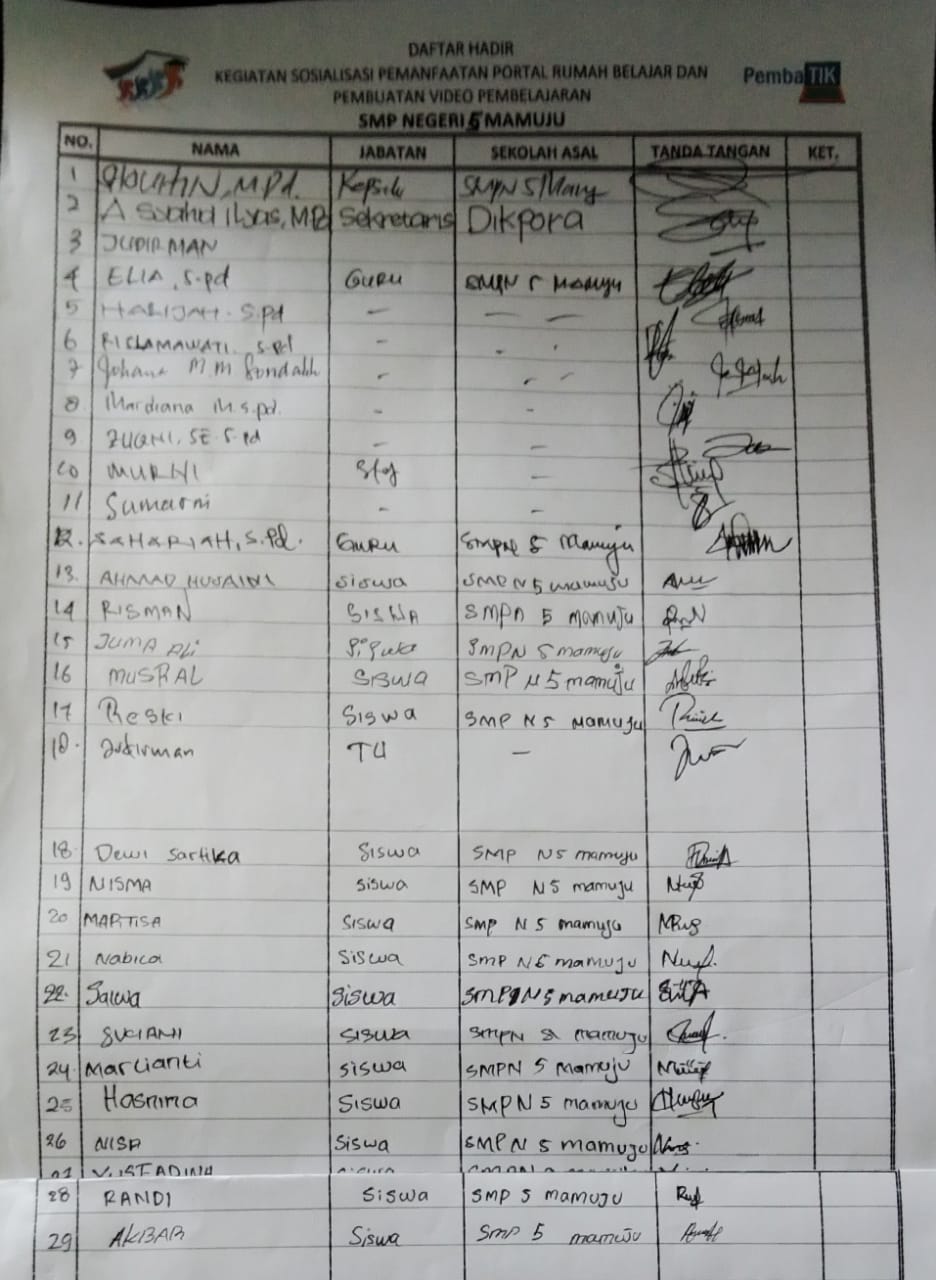 DAFTAR HADIR
KEGIATAN SOSIALISASI PEMANFAATAN PORTAL RUMAH BELAJAR DAN
PEMBUATAN VIDEO PEMBELAJARAN
PembaTIK
SMP NEGERI 5 MAMUJU
NO. NAMA JABATAN SEKOLAH ASAL TANDA TANGAN KET.
1 M.Pd. Kepsek SMPN 5
2 A Syahd Ilyas, Sekretaris Dikpora
3 JUDIRMAN
4 ELIA, S.pd GURU SMPN 5 Mamuju
5 HALIJAH. S.Pd - - -
6 RISLAMAWATI. S.Pd - - -
7 Johana M.M - - -
8 Mardiana M.S.pd. - -
9 ZUQNI, SE. S.Pd - -
10 MURNI Staf -
11 Sumarni - -
12. SAHARIAH, S.Pd. GURU SMPN 5 Mamuju
13. AHMAD HUSAINI Siswa SMP N 5 mamuju
14 RISMAN SISWA SMPN 5 mamuju
15 JUMA ALI SMPN 5 mamuju
16 MUSRAL SISWA SMP N 5 mamuju
17 Reski Siswa SMP N5 Mamuju
18. Judirman TU -
18. Dewi Sartika Siswa SMP N5 mamuju
19 NISMA siswa SMP N5 mamuju
20 MARTISA Siswa SMP N 5 mamuju
21 Nabila Siswa SMP N5 mamuju
22. Salwa Siswa SMP N5 mamuju
23 SUCIANI Siswa SMPN mamuju
24. Marlianti siswa SMPN 5 Mamuju
25 Hasnina Siswa SMPN 5 mamuju
26 NISA Siswa SMP N 5 mamuju
28 RANDI Siswa SMP 5 mamuju
29 AKBAR Siswa SMP 5 mamuju